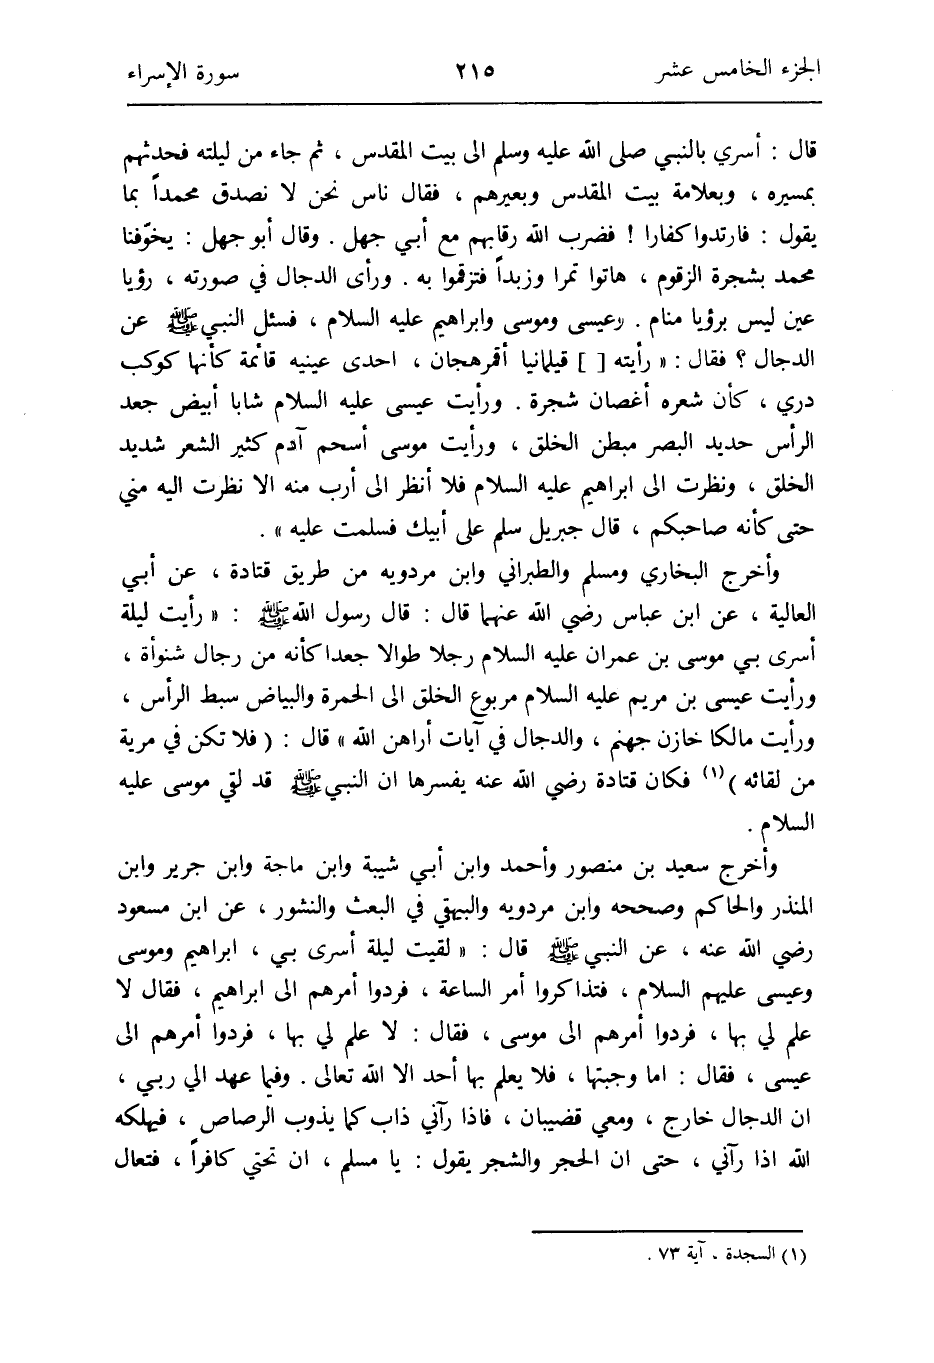 الجزء الخامس عشر ٢١٥ سورة الإسراء
قال : أسري بالنبي صلى الله عليه وسلم الى بيت المقدس ، ثم جاء من ليلته فحدثهم
بمسيره ، وبعلامة بيت المقدس وبعيرهم ، فقال ناس نحن لا نصدق محمداً بما
يقول : فارتدوا كفارا ! فضرب الله رقابهم مع أبي جهل . وقال أبو جهل : يخوّفنا
محمد بشجرة الزقوم ، هاتوا تمرا وزبداً فتزقموا به . ورأى الدجال في صورته ، رؤيا
عين ليس برؤيا منام . وعيسى وموسى وابراهيم عليه السلام ، فسئل النبي ﷺ عن
الدجال ؟ فقال : « رأيته [ ] قيلمانيا أقمرهجان ، احدى عينيه قائمة كأنها كوكب
دري ، كأن شعره أغصان شجرة . ورأيت عيسى عليه السلام شابا أبيض جعد
الرأس حديد البصر مبطن الخلق ، ورأيت موسى أسحم آدم كثير الشعر شديد
الخلق ، ونظرت الى ابراهيم عليه السلام فلا أنظر الى أرب منه الا نظرت اليه مني
حتى كأنه صاحبكم ، قال جبريل سلم على أبيك فسلمت عليه » .
وأخرج البخاري ومسلم والطبراني وابن مردويه من طريق قتادة ، عن أبي
العالية ، عن ابن عباس رضي الله عنهما قال : قال رسول الله ﷺ : « رأيت ليلة
أسرى بي موسى بن عمران عليه السلام رجلا طوالا جعدا كأنه من رجال شنوأة ،
ورأيت عيسى بن مريم عليه السلام مربوع الخلق الى الحمرة والبياض سبط الرأس ،
ورأيت مالكا خازن جهنم ، والدجال في آيات أراهن الله » قال : ( فلا تكن في مرية
من لقائه ) (١) فكان قتادة رضي الله عنه يفسرها ان النبي ﷺ قد لقي موسى عليه
السلام .
وأخرج سعيد بن منصور وأحمد وابن أبي شيبة وابن ماجة وابن جرير وابن
المنذر والحاكم وصححه وابن مردويه والبيهقي في البعث والنشور ، عن ابن مسعود
رضي الله عنه ، عن النبي ﷺ قال : « لقيت ليلة أسرى بي ، ابراهيم وموسى
وعيسى عليهم السلام ، فتذاكروا أمر الساعة ، فردوا أمرهم الى ابراهيم ، فقال لا
علم لي بها ، فردوا أمرهم الى موسى ، فقال : لا علم لي بها ، فردوا أمرهم الى
عيسى ، فقال : اما وجبتها ، فلا يعلم بها أحد الا الله تعالى . وفيما عهد الي ربي ،
ان الدجال خارج ، ومعي قضيبان ، فاذا رآني ذاب كما يذوب الرصاص ، فيهلكه
الله اذا رآني ، حتى ان الحجر والشجر يقول : يا مسلم ، ان تحتي كافراً ، فتعال
(١) السجدة ، آية ٧٣ .